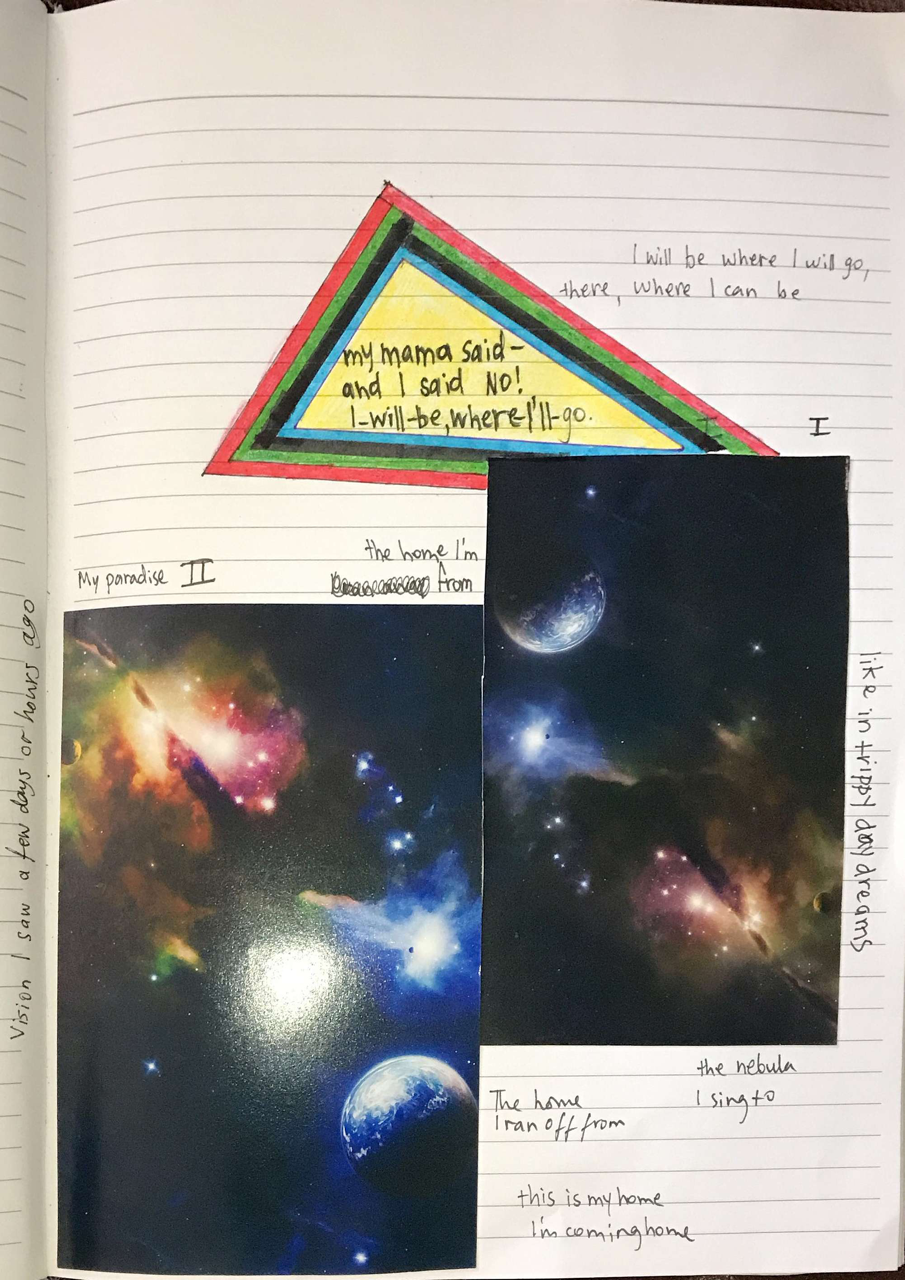 I will be where I will go,
there, where I can be
my mama said-
and I said NO!
I-will-be, where-I'll-go.
I
I
the home I'm
from
My paradise II
Vision I saw a few days or hours ago
like in trippy day dreams
the nebula
I sing to
The home
I ran off from
this is my home
I'm coming home